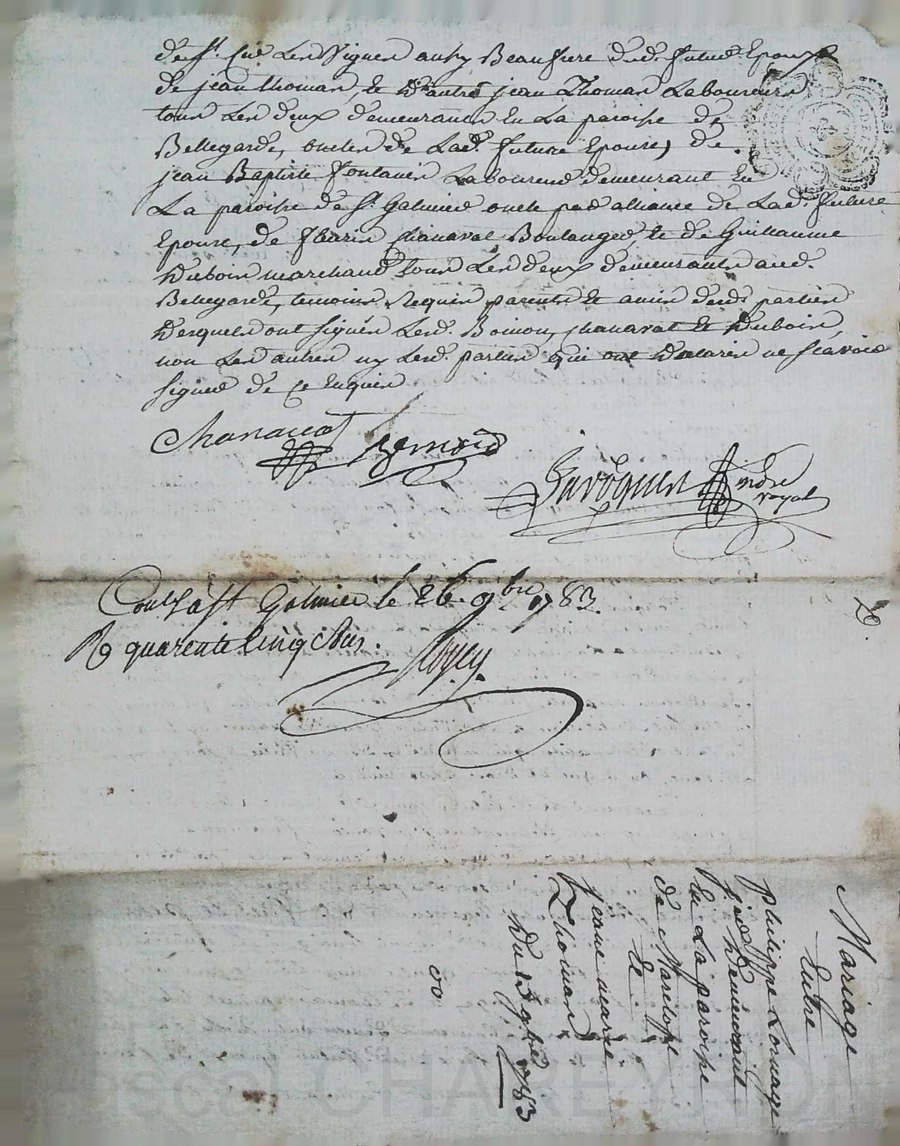 de St. Cire Les Vignes aussy Beaufrere dud. futur Epoux
de jean thomas, et d'autre jean Thomas Laboureurs
tous Les deux demeurants En La paroisse de
Bellegarde, oncles de Lad. future Epouse, de
jean Baptiste fontanes Laboureur demeurant En
La paroisse de St. Galmier oncle par alliance de Lad. future
Epouse, de Chanavat Boulanger, et de Guillaume
Duboin marchand tous Les deux demeurants aud.
Bellegarde, temoins Requis parents et amis desd. parties
Desquels ont signés Lesd. Chanavat et Duboin,
non Les autres ny Lesd. parties qui ont declarés ne scavoir
signer de ce Enquis
Chanavat
royal
Conlé a St Galmier le 26 9bre 1783
R quarente cinq sous.
Mariage
Entre
philippe
demeurant
En La paroisse
de
Et
jeane marie
Thomas
Du 13 9bre 1783
CHAREYRON